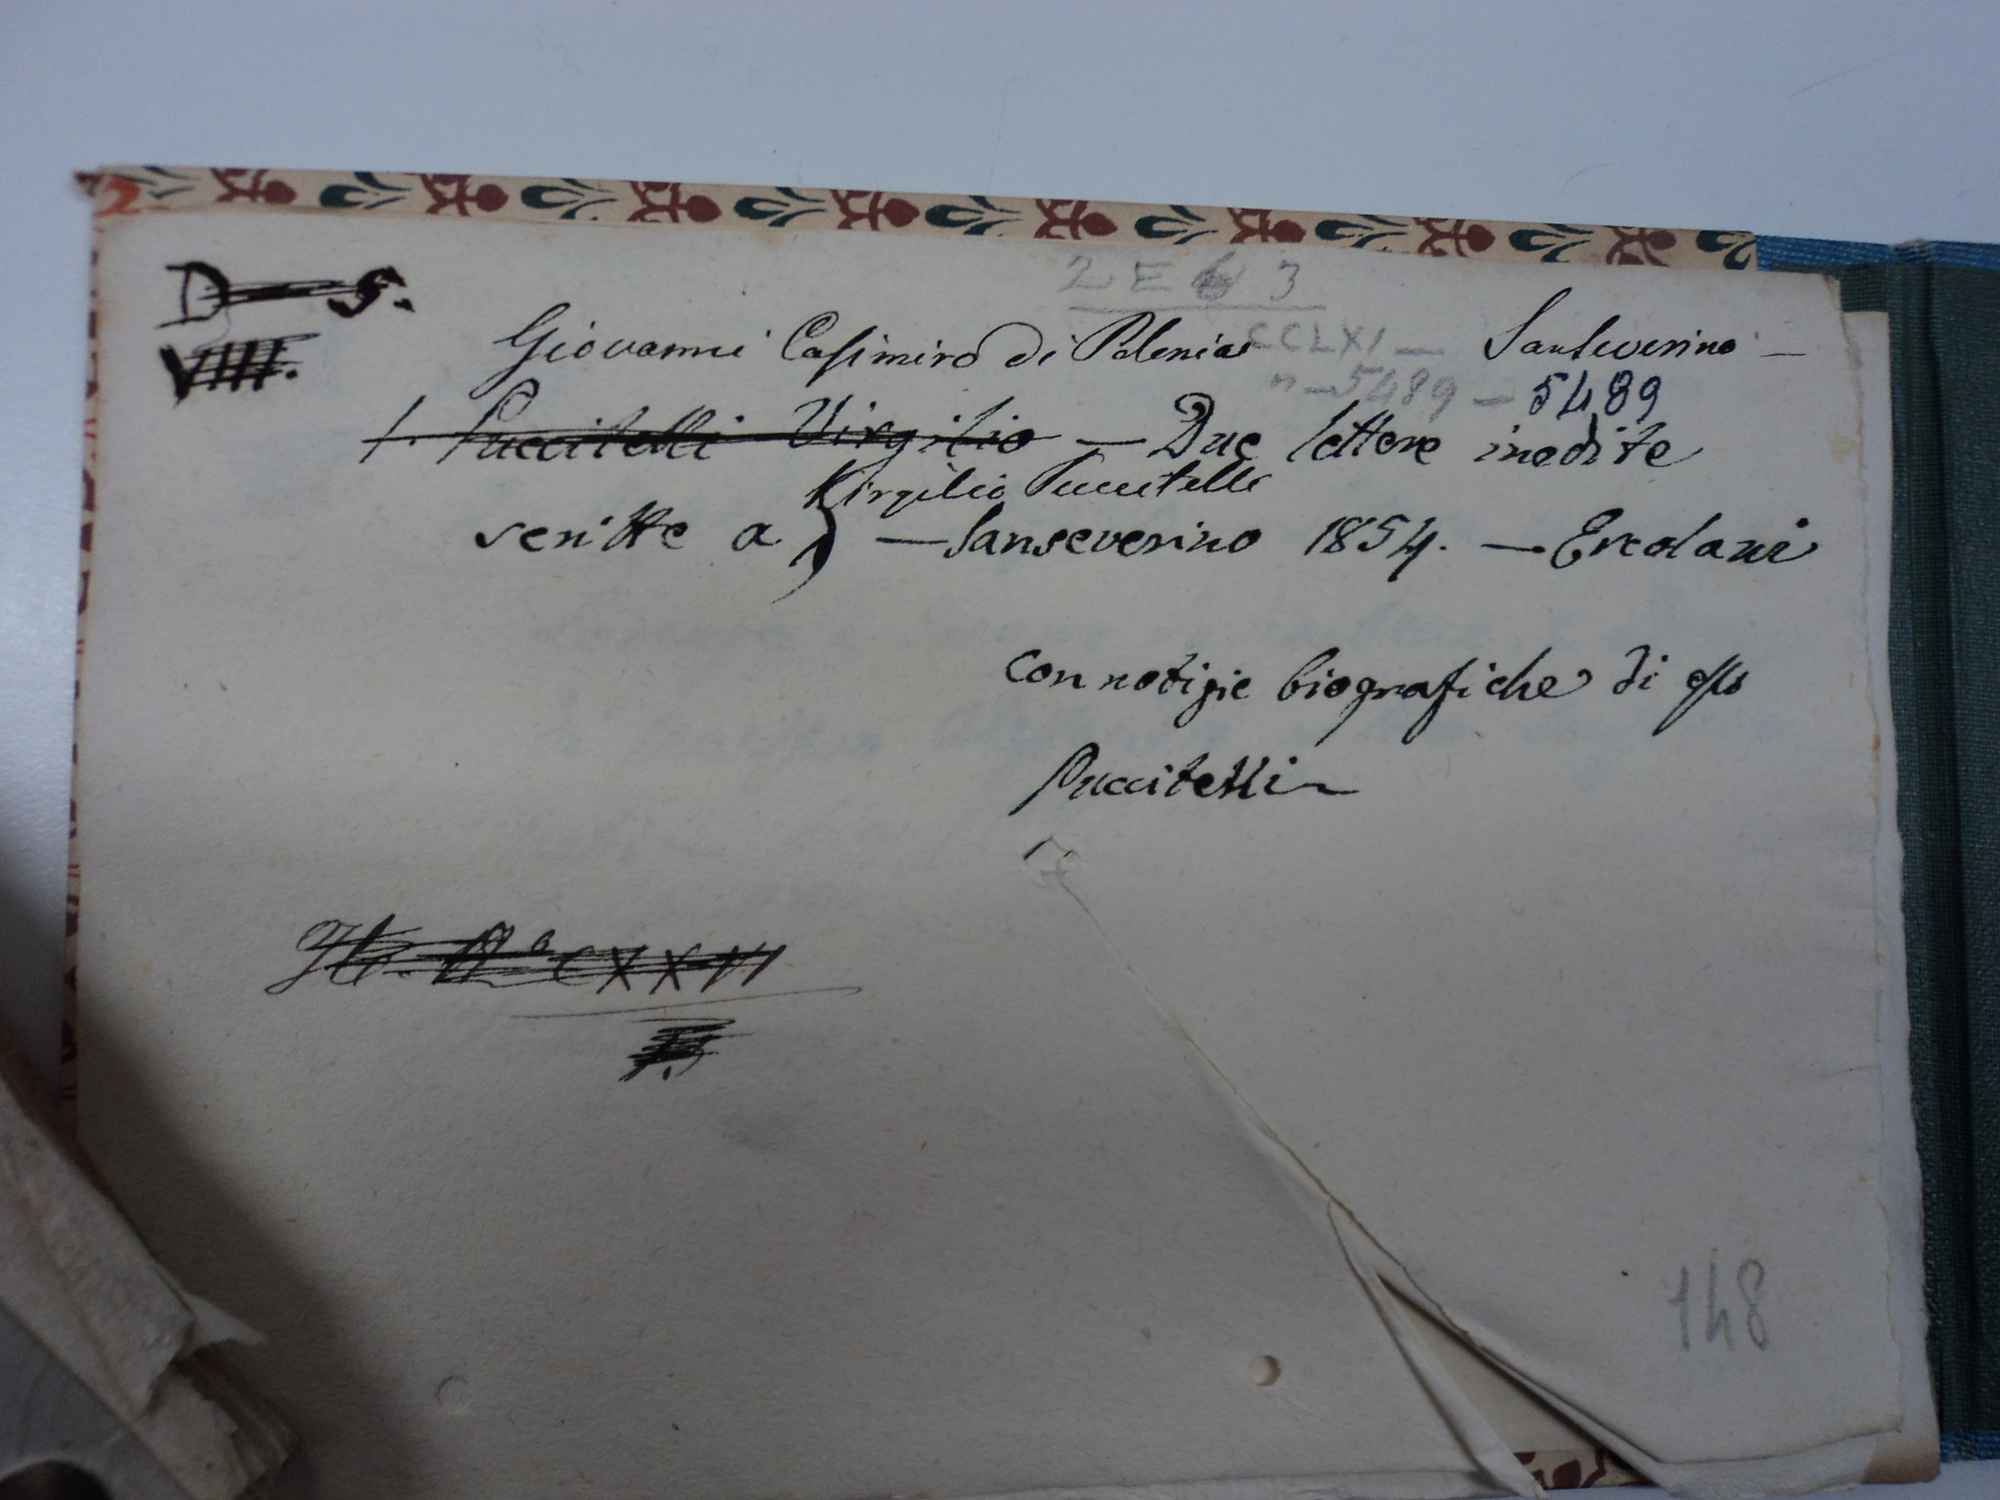 2 E 6 3
D — 5.
VIIII.
Giovanni Casimiro di Polonia CCLXI — Sanseverino —
n — 5489 — 5489
1. Puccitelli Virgilio — Due lettere inedite
Virgilio Puccitelli
scritte a — Sanseverino 1854. — Ercolani
con notizie biografiche di esso
Puccitelli
CXXVI
148